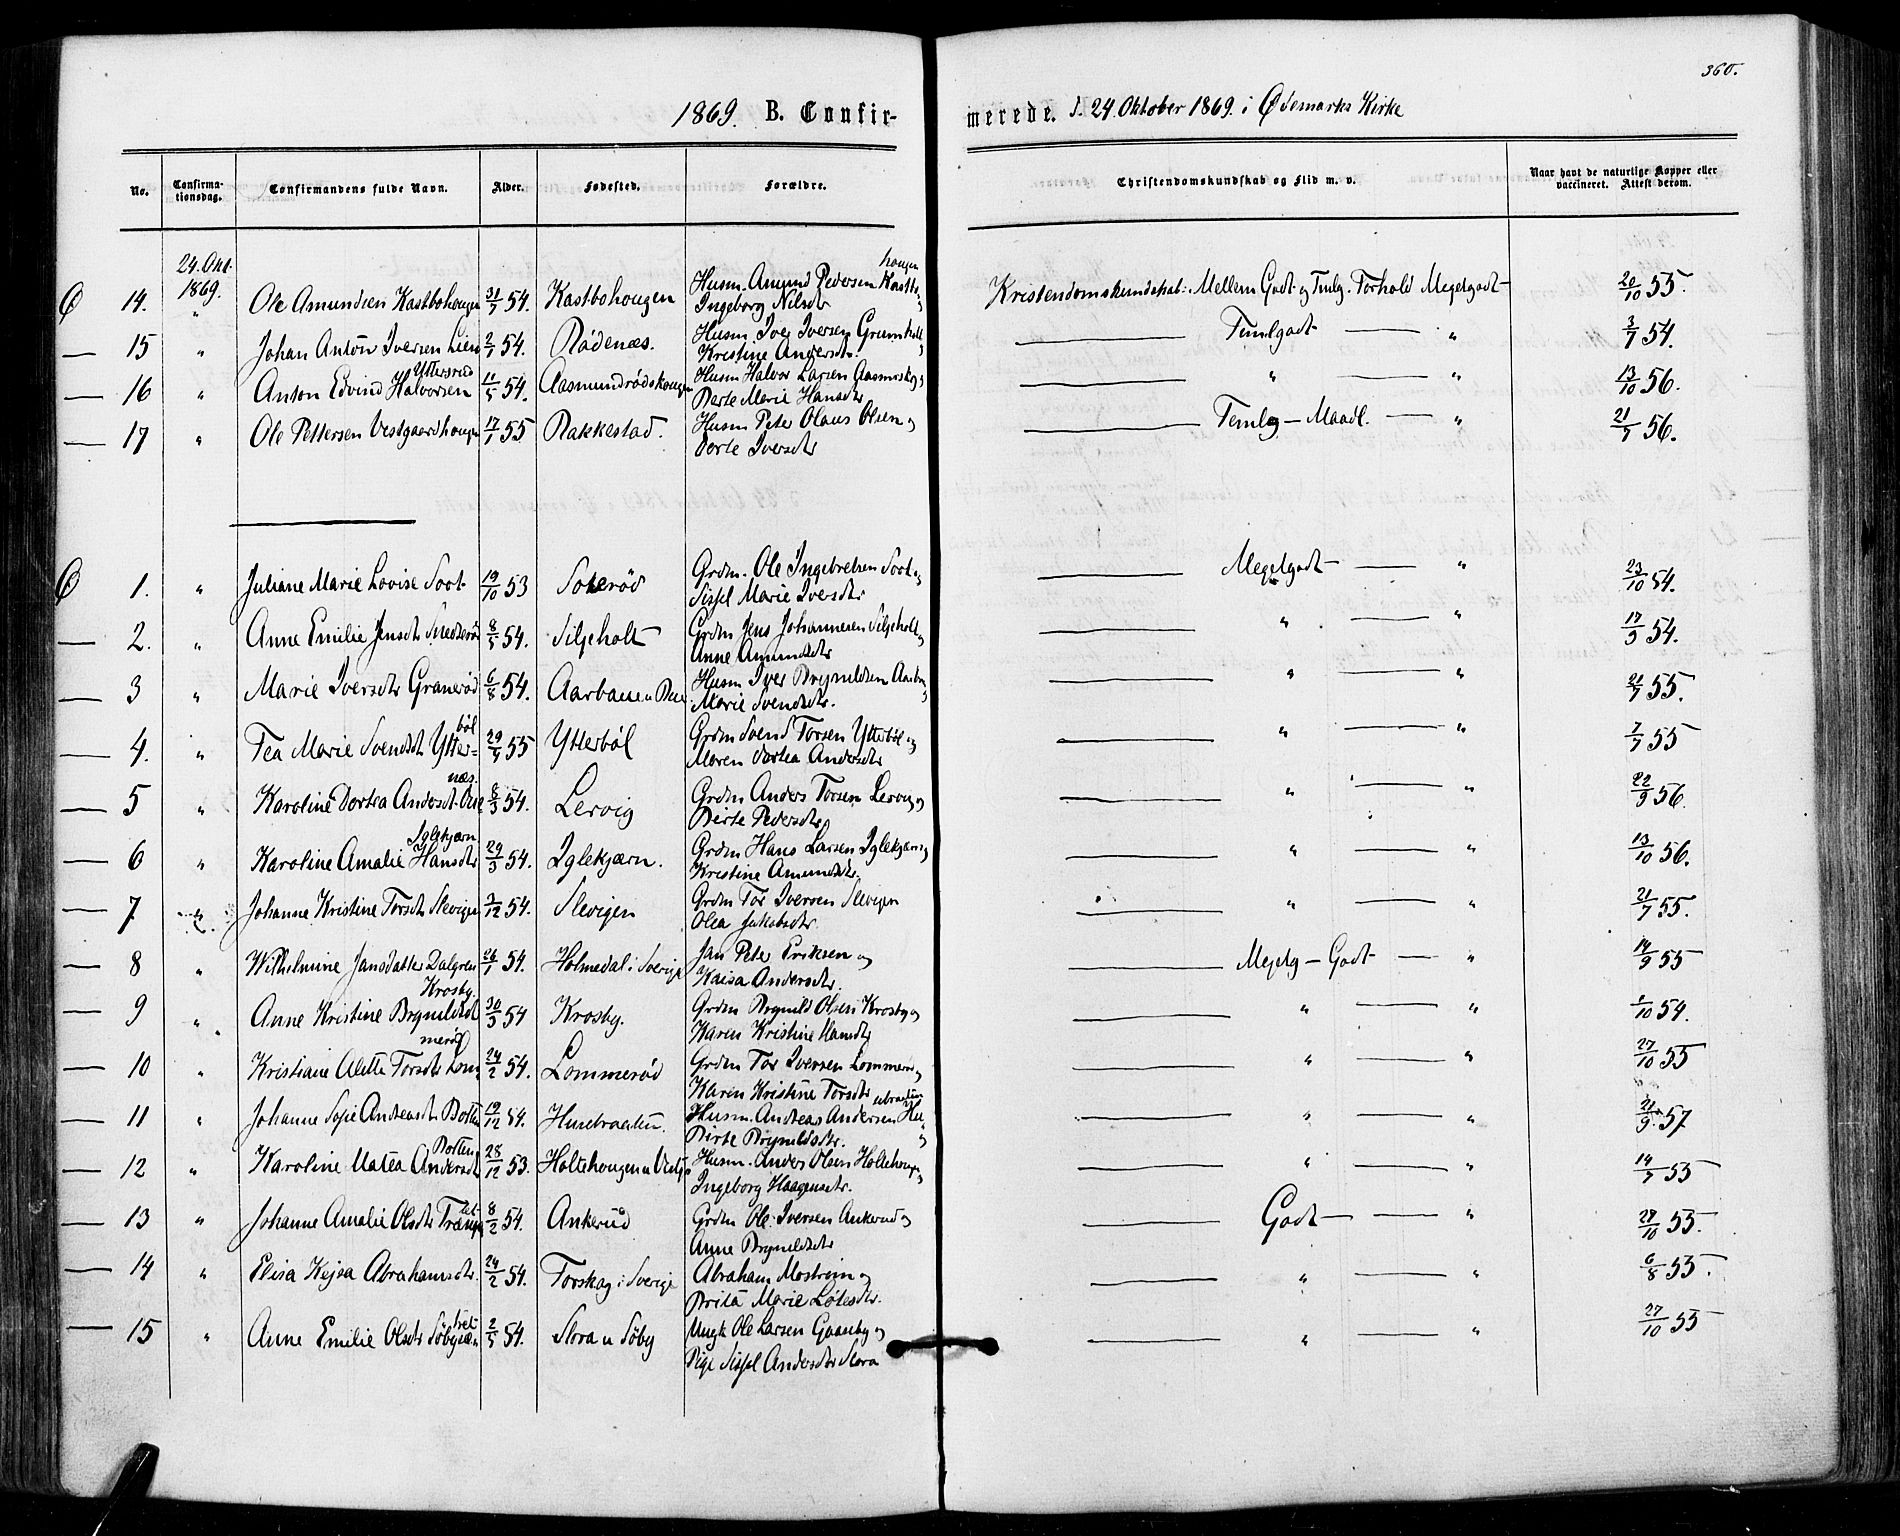 360.
1869. B. Confirmerede. d. 24. Oktober 1869. i Ødemarks Kirke
No. Confirmationsdag. Confirmandens fulde Navn. Alder. Fødested. Forældre. Christendomskundskab og Flid m. v. Naar havt de naturlige Kopper eller vaccineret. Attest derom.
24. Okt. 1869.
14. " Ole Amundsen Kastbohougen 31/7 54. Kastbohougen Husm. Amund Pedersen Kastbohougen Ingeborg Nilsdtr Kristendomskundskab: Mellem Godt og Temlg. Forhold Megetgodt 20/10 55.
— 15 " Johan Anton Iversen Lien 2/7 54. Rødenæs. Husm. Iver Iversen Kristine Andersdtr. — Temlgodt — " 3/7 54.
— 16 " Anton Edvind Halvorsen Yttersrud 11/5 54. Aasmundrødshougen Husm Halvor Larsen og Berte Marie Hansdtr — " — " 13/10 56.
— 17 " Ole Pettersen Vestgaardhougen 17/1 55 Rakkestad. Husm Peter Olaus Olsen og Dorte Iversdtr — Temlg — Maadl. — " 21/7 56.
1. " Juliane Marie Lovise Soot 19/10 53 Soterød Grdm. Ole Ingebretsen Soot og Sissel Marie Iversdtr — Megetgodt — " 23/10 54.
— 2. " Anne Emilie Jensdtr 8/5 54. Siljeholt Grdm Jens Johannesen Siljeholt og Anne Amundsdtr — " — " 17/9 54.
— 3 " Marie Iversdtr Granerød 6/8 54. Husm Iver Brynildsen Marie Svendsdtr. — " — " 21/7 55.
— 4. " Tea Marie Svendsdt Ytterbøl 29/4 55 Ytterbøl Grdm Svend Torsen Ytterbøl og Maren Dortea Andersdtr — " — " 7/7 55
— 5 " Karoline Dortea Andersdt. 8/3 54. Lervig Grdm Anders Torsen Lervig og Birte Pedersdtr — " — " 22/9 56.
— 6 " Karoline Amalie Hansdtr Iglekjærn 29/3 54. Iglekjærn. Grdm Hans Larsen Iglekjærn og Kristine Amundsdtr. — " — " 13/10 56.
— 7 " Johanne Kristine Torsdtr Slevigen 3/12 54. Slevigen Grdm Tor Iversen Slevigen Olea Jakobsdtr. — " — " 21/7 55.
— 8 " Wilhelmine Jansdatter Dalgren 26/1 54. Holmedal i Sverige Jan Peter Eriksen og Kaisa Andersdtr. — Megetg — Godt — " 14/9 55
— 9 " Anne Kristine Brynildsdt Krosby. 30/3 54 Krosby. Grdm Brynild Olsen Krosby og Karen Kristine Hansdtr — " — " /10 54.
— 10 " Kristiane Alette Torsdtr Lommerød 24/2 54. Lommerød Grdm Tor Iversen Lommerød Karen Kristine Torsdtr — " — " 27/10 55
— 11 " Johanne Sofie Andreasdt Botten 19/12 54. Husebraaten. Husm. Andreas Andersen Husebraaten og Birte Brynildsdtr. — " — " 21/9 57
— 12 " Karoline Matea Andersdt Botten 28/12 53. Holtehougen Husm. Anders Olsen Holtehougen og Ingeborg Haagensdtr. — " — " 14/7 55
— 13 " Johanne Amalie Olsdtr 8/2 54. Ankerud Grdm Ole Iversen Ankerud og Anne Brynildsdtr — Godt — " 27/10 55.
— 14 " Elisa Kejsa Abrahamsdtr. 24/2 54. Torskog i Sverige Abraham og Brita Marie — " — " 6/8 55.
— 15 " Anne Emilie Olsdtr 2/5 54. Slora u Søby Ungk Ole Larsen og Pige Sissel Andersdtr Slora — " — " 27/10 55